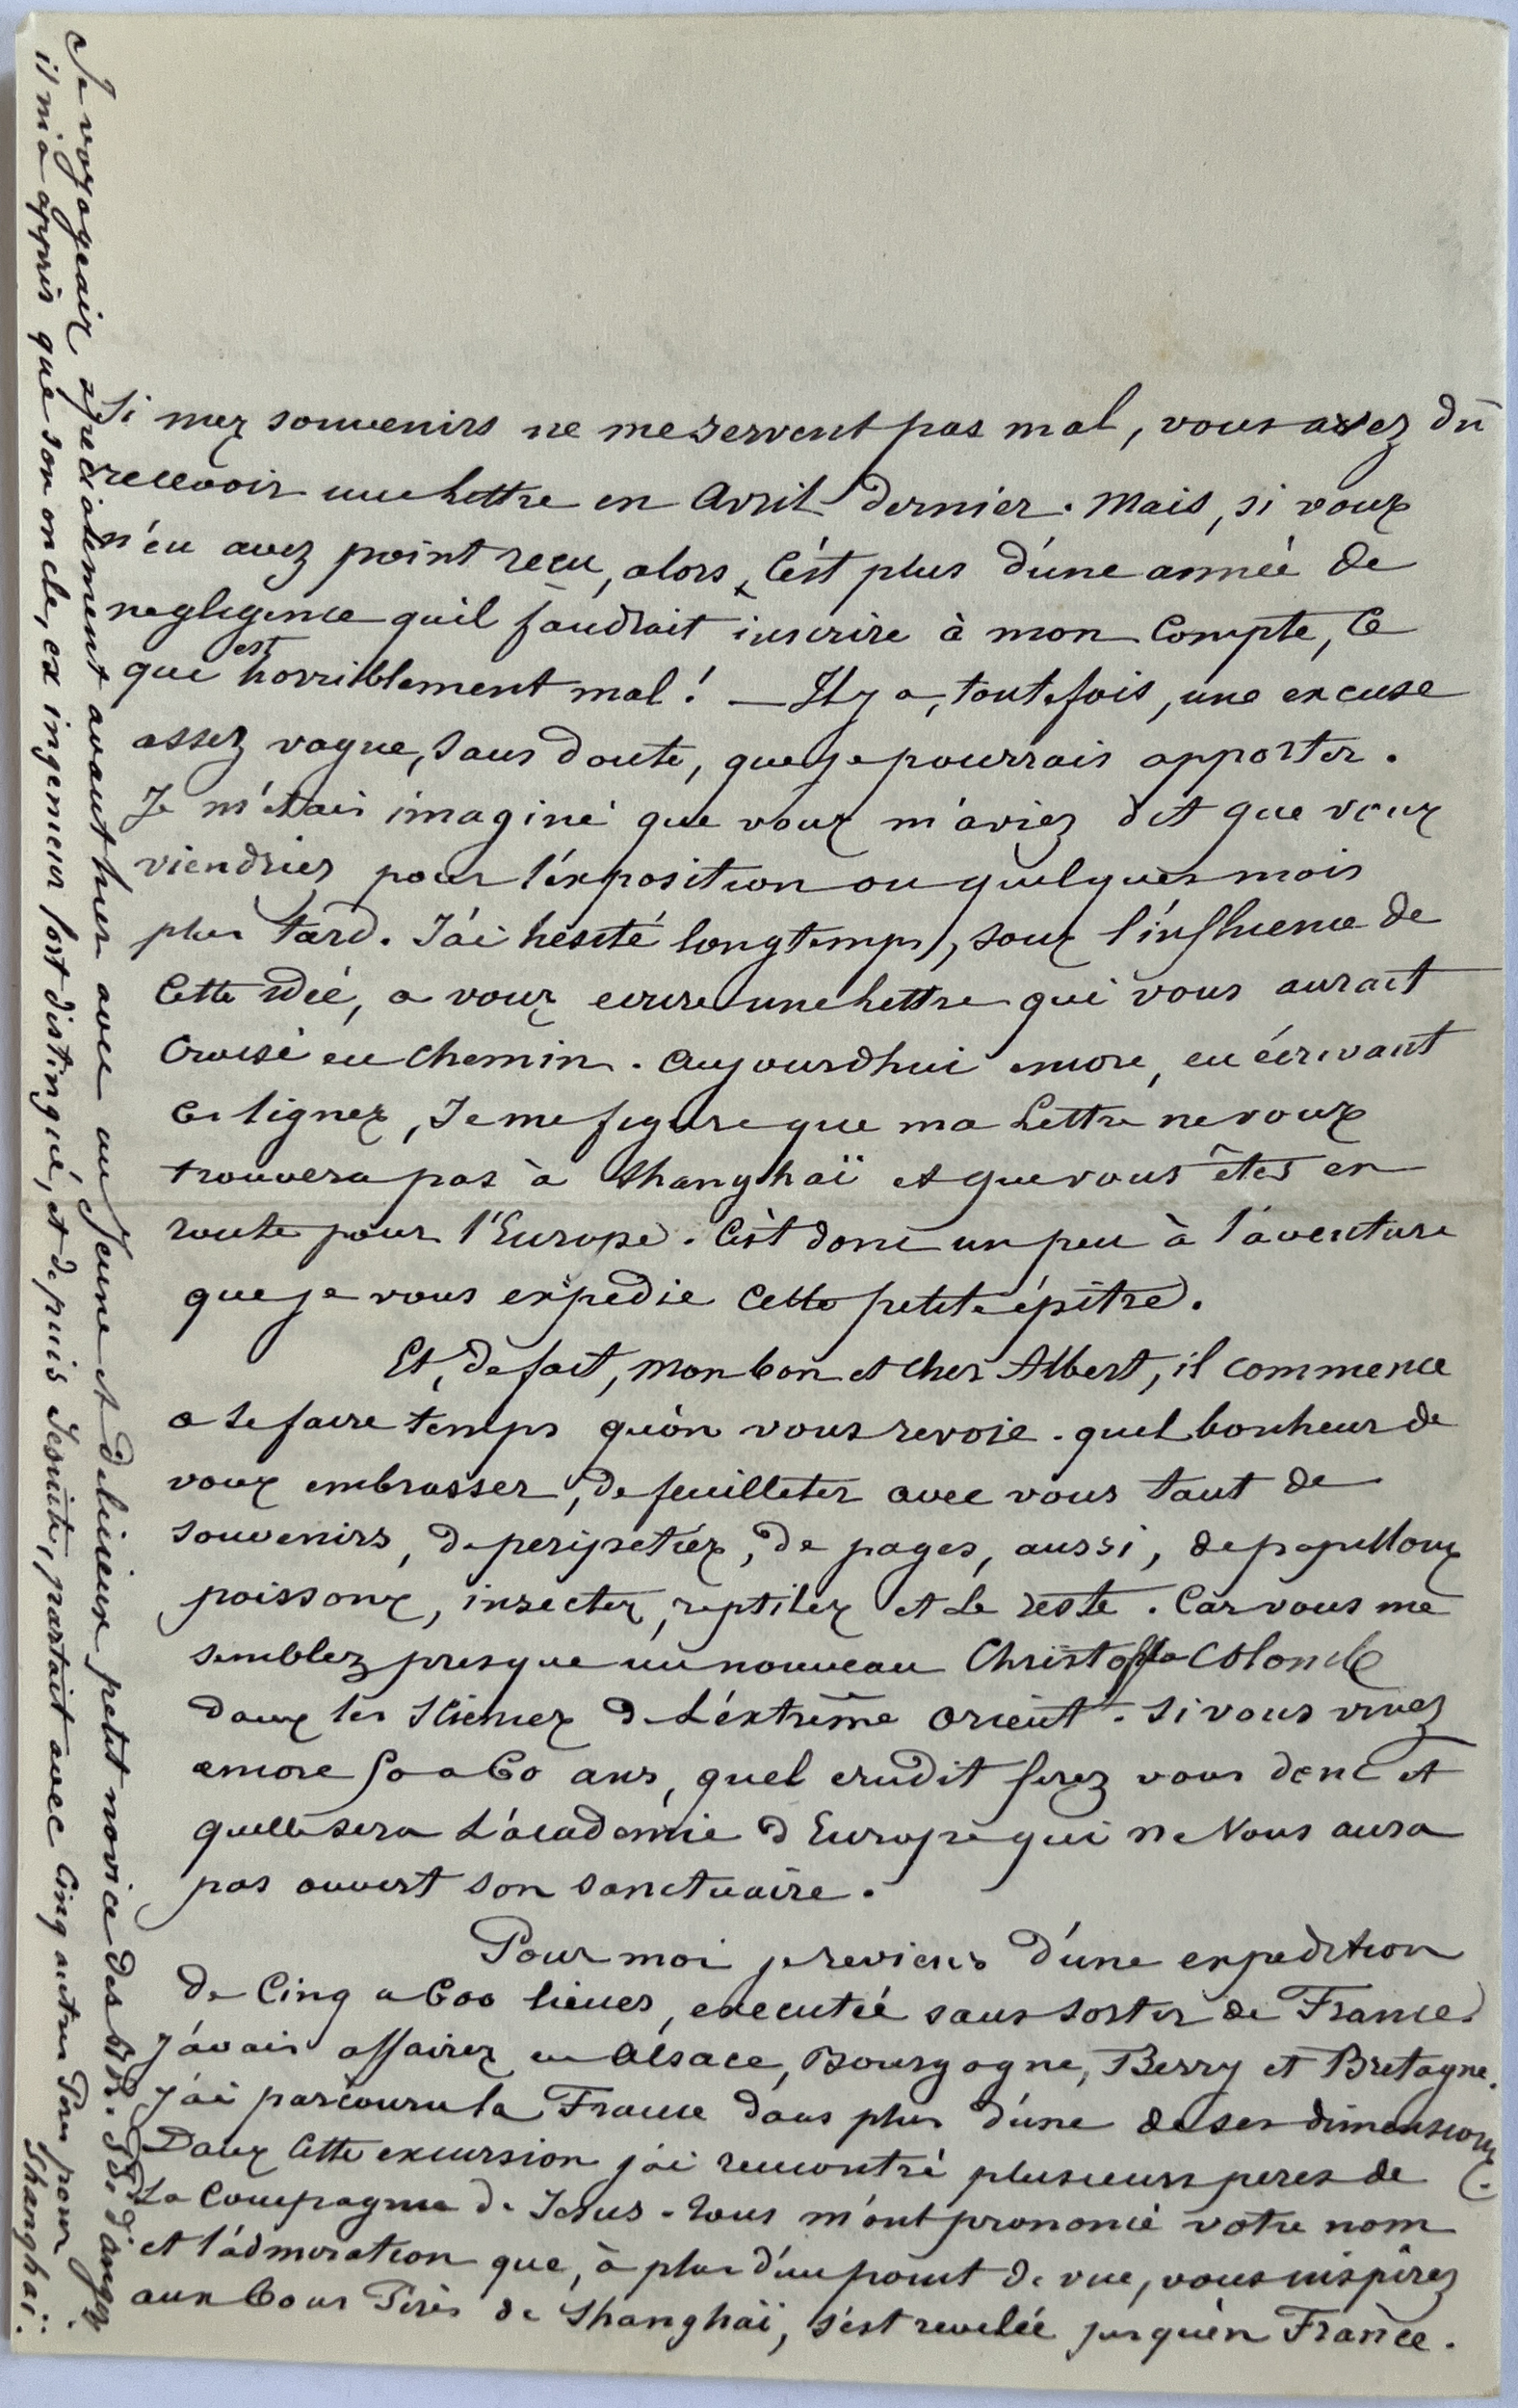 Si mes souvenirs ne me servent pas mal, vous avez dû
recevoir une lettre en Avril dernier. Mais, si vous
n'en avez point recu, alors, c'est plus d'une année de
negligence qu'il faudrait inscrire à mon Compte, Ce
qui est horriblement mal ! — Il y a, toutefois, une excuse
assez vague, sans doute, que je pourrais apporter.
Je m'etais imaginé que vous m'aviez dit que vous
viendriez pour l'exposition ou quelques mois
plus tard. J'ai hésité longtemps, sous l'influence de
Cette idée, a vous ecrire une lettre qui vous aurait
Croisé en Chemin. Aujourdhui encore, en écrivant
Ces lignes, Je me figure que ma Lettre ne vous
trouvera pas à Shanghaï et que vous êtes en
route pour l'Europe. C'est donc un peu à l'aventure
que je vous expedie Cette petite épitre.
Et, de fait, mon bon et cher Albert, il commence
a se faire temps qu'on vous revoie. quel bonheur de
vous embrasser, de feuilleter avec vous tant de
souvenirs, de peripeties, de pages, aussi, de papillons
poissons, insectes, reptiles et le reste. Car vous me
semblez presque un nouveau Christophe Colomb
dans les sciences de L'extrême Orient. Si vous vivez
encore 50 a 60 ans, quel erudit serez vous donc et
quelle sera L'academie d'Europe qui ne Vous aura
pas ouvert son sanctuaire.
Pour moi je reviens d'une expedition
de Cinq a 600 lieues, executée sans sortir de France.
J'avais affaires en Alsace, Bourgogne, Berry et Bretagne.
J'ai parcouru la France dans plus d'une de ses dimensions.
Dans Cette excursion j'ai rencontré plusieurs peres de
La Compagnie de Jesus. Tous m'ont prononcé votre nom
et l'admiration que, à plus d'un point de vue, vous inspirez
aux bons Pères de Shanghaï, s'est revelée jusqu'en France.
Je voyageais agreablement avant hier avec un Jeune et delicieux petit novice des RR. PP. d'Angers
il m'a appris que son oncle, ex ingenieur fort distingué, et depuis Jesuite, partait avec Cinq autres Pères pour
Shanghaï.